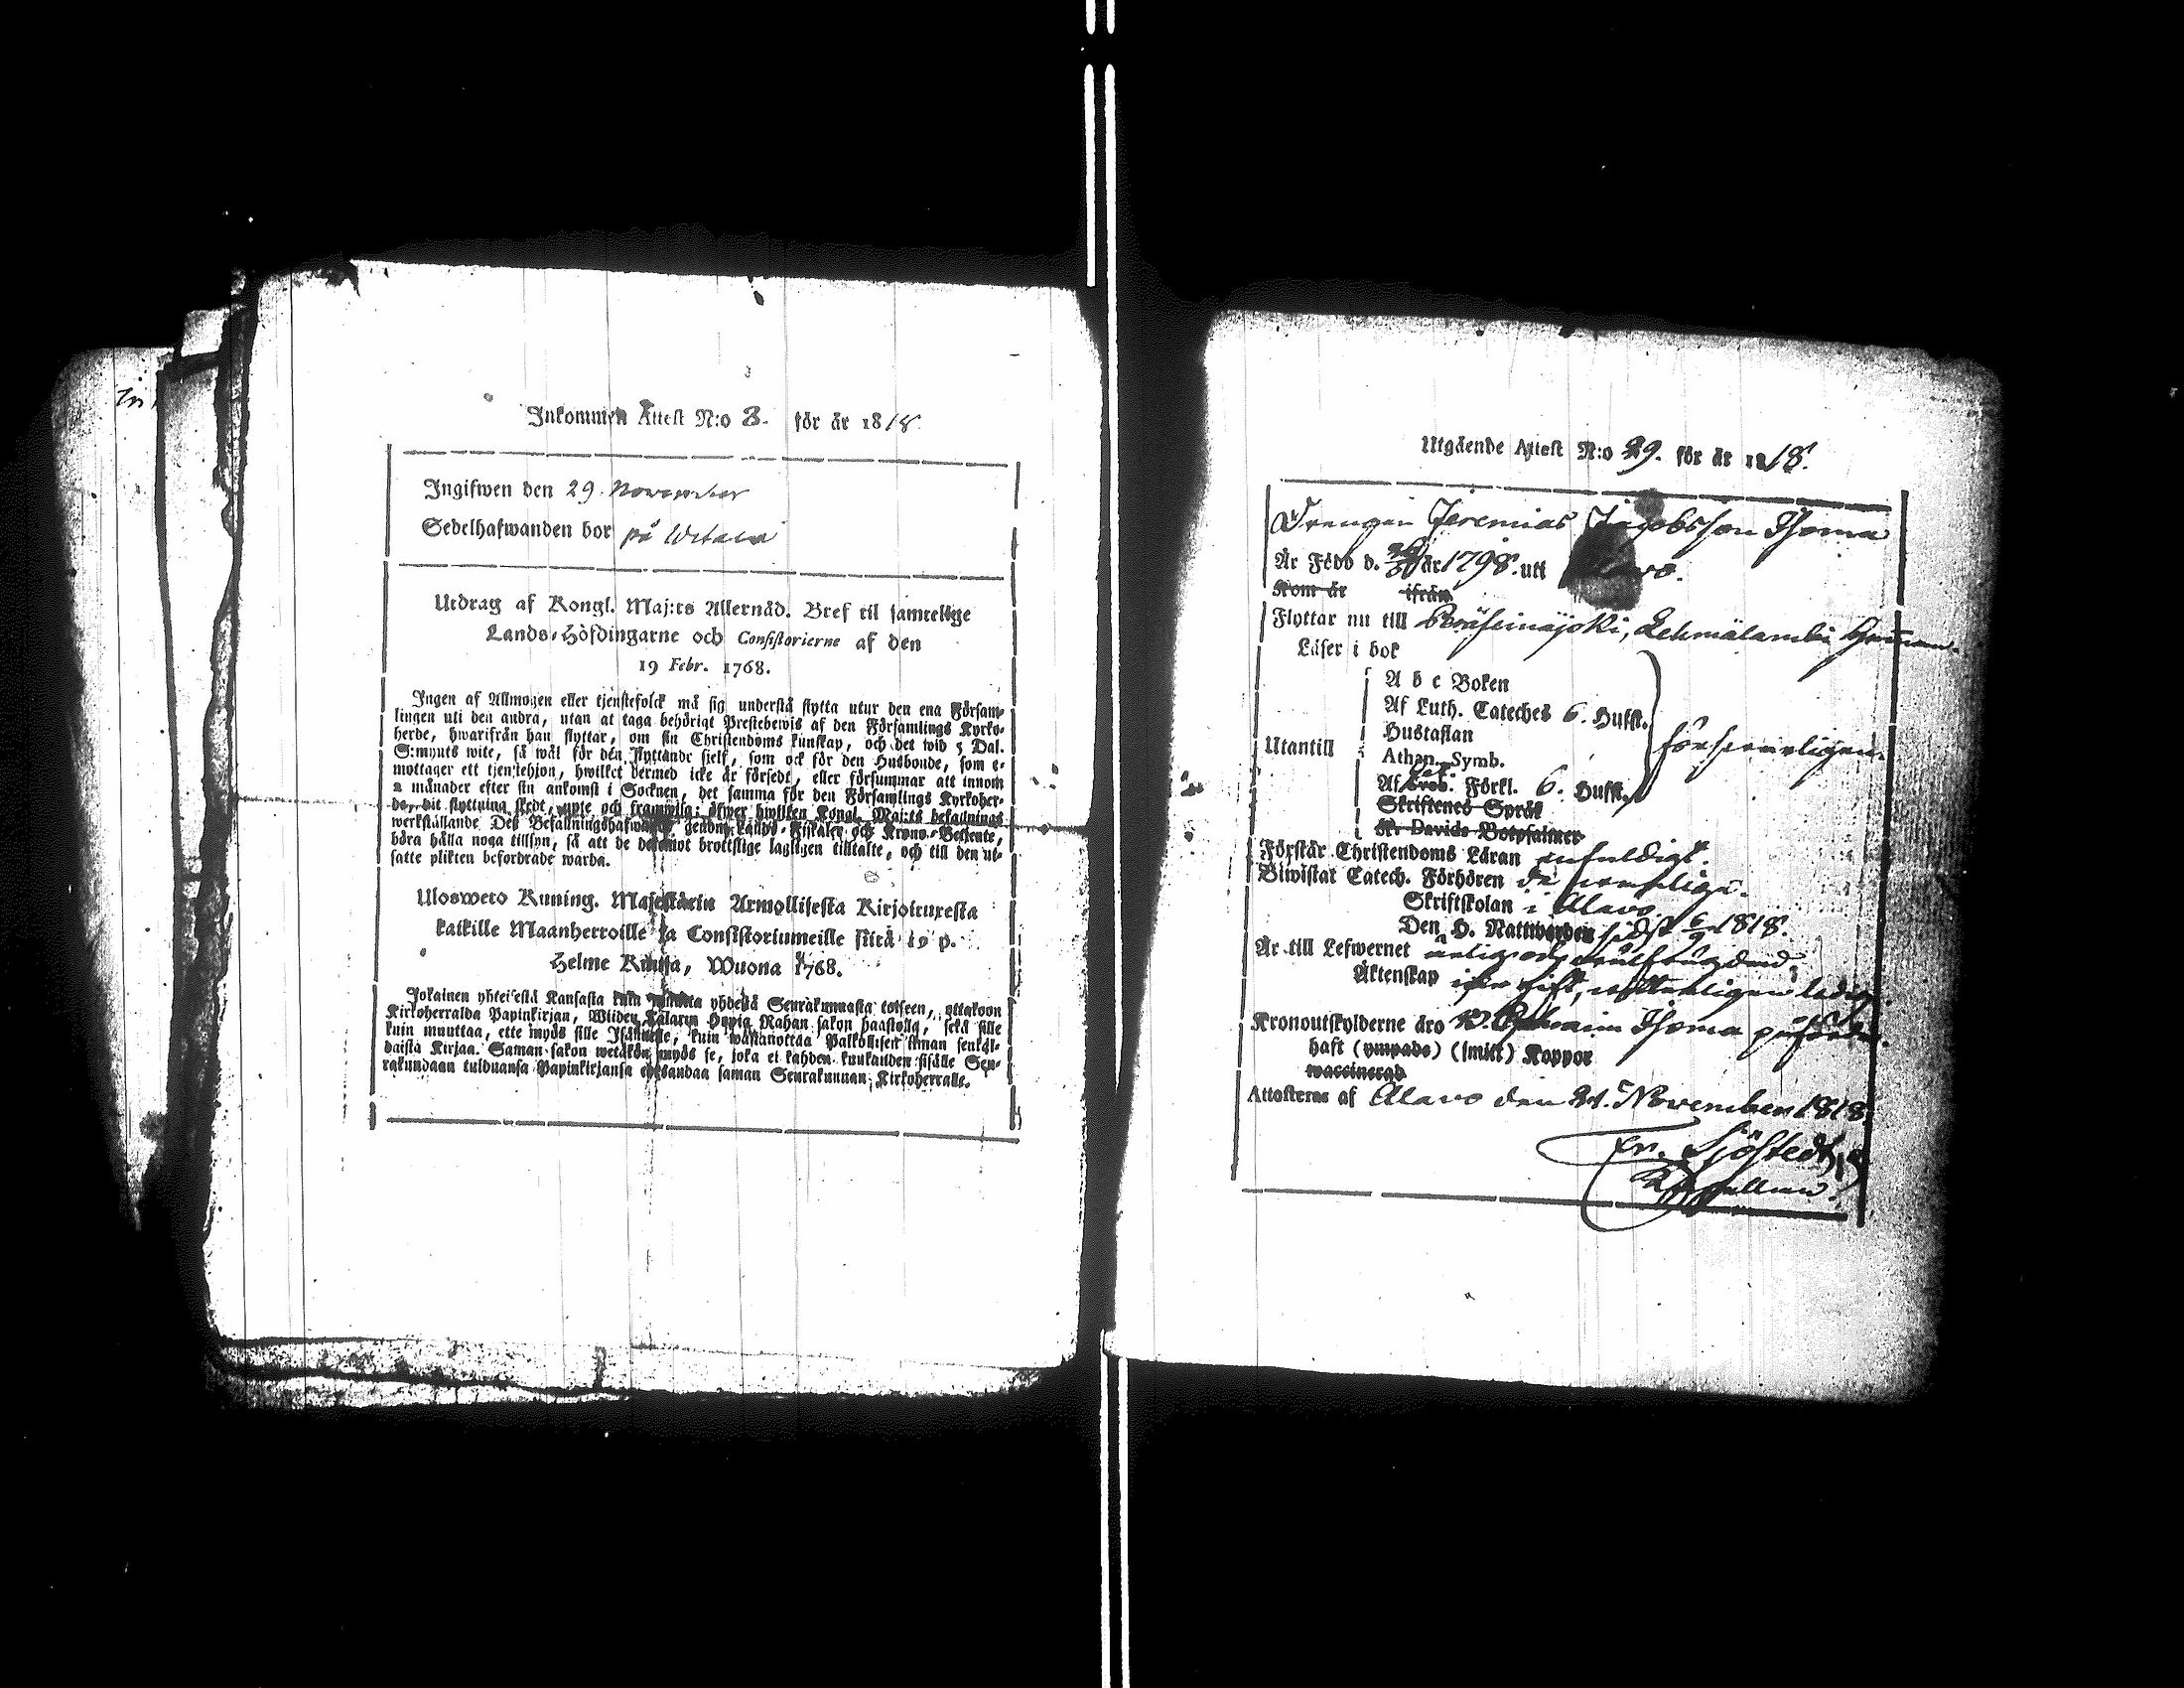 Inkommen Attest N:o 3. för år 1818
Ingifwen den 29 November
Sedelhafwanden bor på
Utdrag af Kongl. Maj:ts Allernåd. Bref til samtelige
Lands-Höfdingarne och Consistorierne af den
19 Febr. 1768.
Ingen af Allmogen eller tjenstefolck må sig understå flytta utur den ena Försam-
lingen uti den andra, utan at taga behörigt Prestebewis af den Församlings Kyrko-
herde, hwarifrån han flyttar, om sin Christendoms kunskap, och det wid 5 Dal.
S:mynts wite, så wäl för den flyttande sjelf, som ock för den Husbonde, som e-
mottager ett tjenstehjon, hwilket dermed icke är försedt, eller försummar att innom
2 månader efter sin ankomst i Socknen, det samma för den Församlings Kyrkoher-
de, dit flyttning skedt, upte och framwisa; öfwer hwilken Kongl. Maj:ts befallnings
werkställande Deß Befallningshafwande genom Lands-Fiskaler och Krono-Betjente,
böra hålla noga tillsyn, så att de deremot brottslige lagligen tilltalte, och till den ut-
satte plikten befordrade warda.
Ulosweto Kuning. Majestätin Armollisesta Kirjoituxesta
kaikille Maanherroille ja Consistoriumeille siitä 19 p.
Helme Kuusa, Wuona 1768.
Jokainen yhteisestä Kansasta kuin muutta yhdestä Seurakunnasta toiseen, ottakoon
Kirkoherralda Papinkirjan, Wiiden Talarin Hopia Rahan sakon haastolla, sekä sille
kuin muuttaa, ette myös sille Isännälle, kuin wastanottaa Palkollisen ilman senkal-
daista Kirjaa. Saman sakon wetäkön myös se, joka ei kahden kuukauden sisälle Seu-
rakundaan tulduansa Papinkirjansa edesandaa saman Seurakunnan Kirkoherralle.
Utgående Attest N:o 29. för år 1818.
Drengen Jeremias Jacobsson Thoma
Är Född d. år 1798. uti Alavo.
Kom år ifrån
Flyttar nu till Peräseinäjoki,
Läser i bok
A b c Boken
Af Luth. Cateches 6. Hufst.
Hustaflan
Utantill
Athan. Symb.
försvarligen.
Af Förkl. 6. Hufst.
Skriftenes Språk
K. Davids Botpsalmer
Förstår Christendoms Läran enfaldigt.
Biwistat Catech. Förhören de vanliga.
Skriftskolan i Alavo.
Den H. Nattwarden sidst 6/9 1818.
Är till Lefwernet ärlig och
Äktenskap icke gift, ledig.
Kronoutskylderne äro Thoma påförde.
haft (ympade) (smitt) Koppor
waccinerad
Attesteras af Alavo den 21. November 1818
Fr. Sjöstedt,
Kapellan.